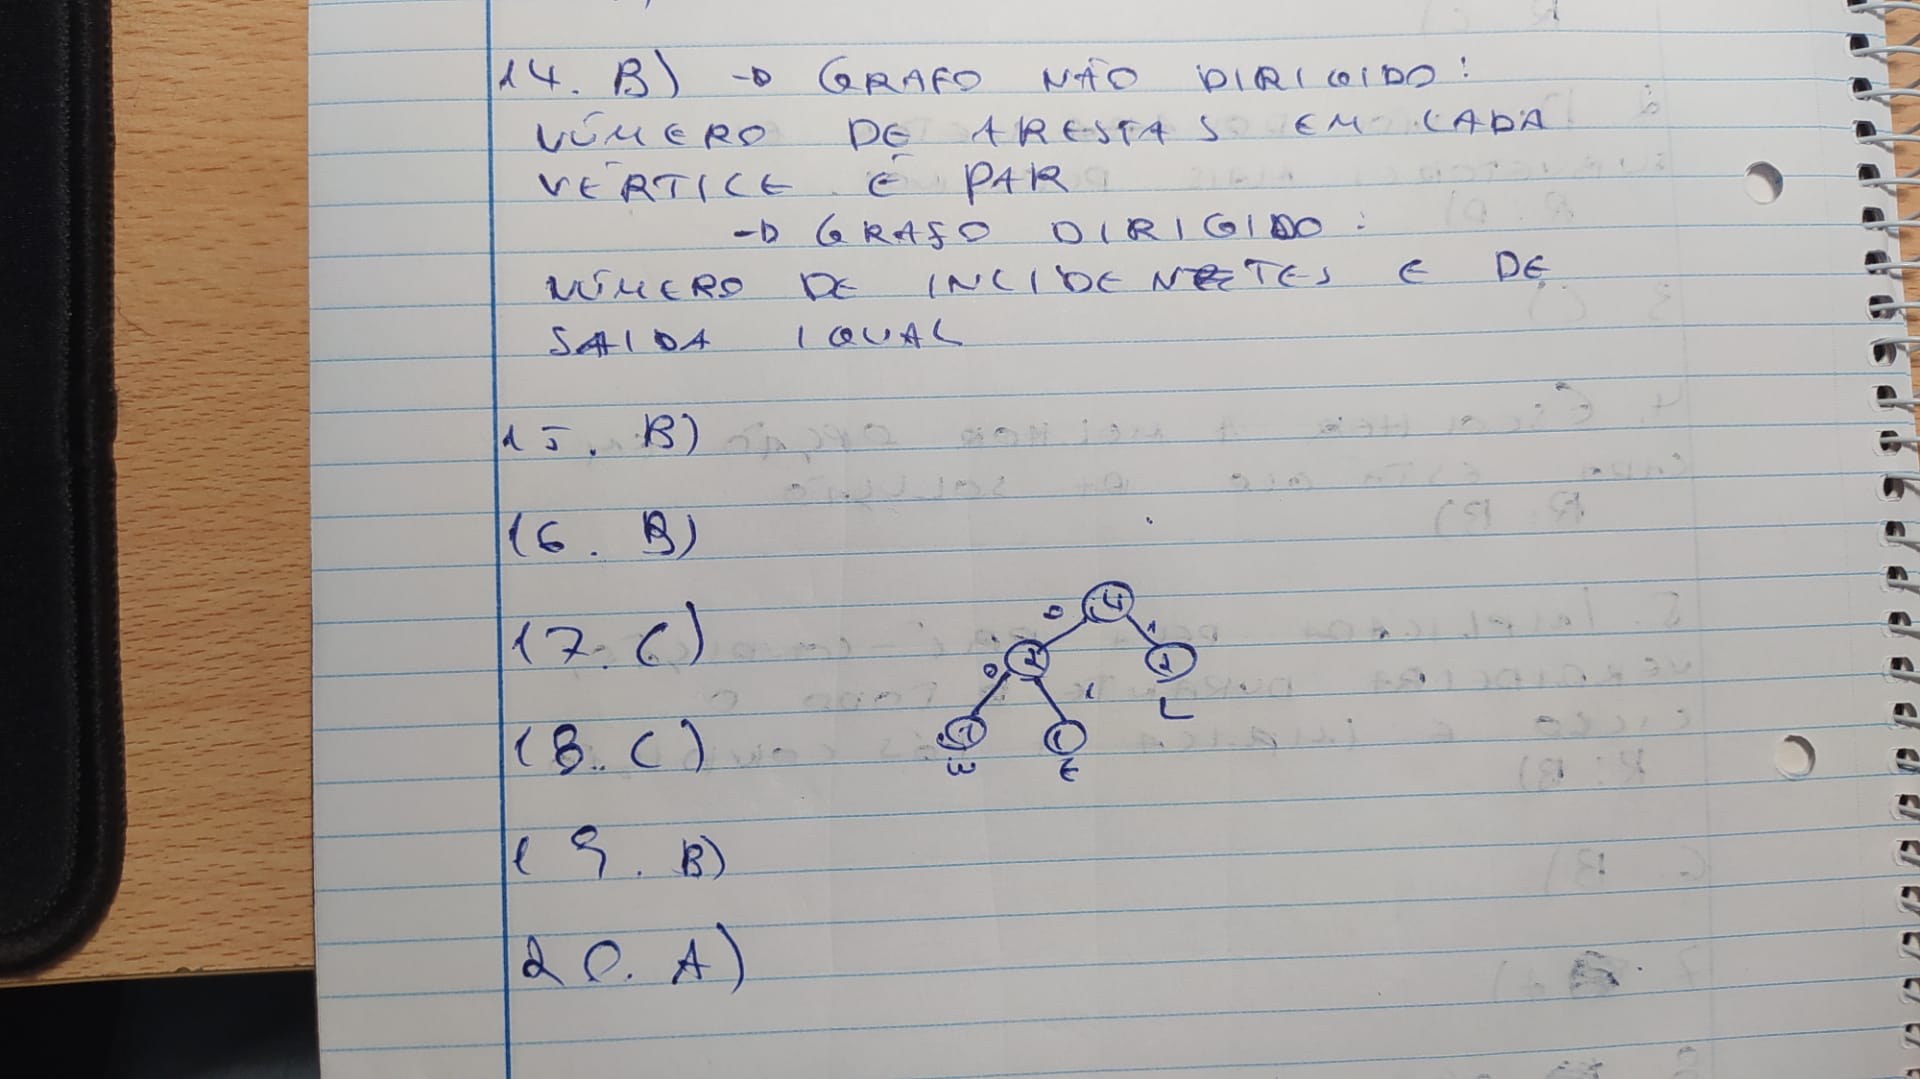 14. B) → GRAFO NÃO DIRIGIDO:
NÚMERO DE ARESTAS EM CADA
VÉRTICE É PAR
→ GRAFO DIRIGIDO:
NÚMERO DE INCIDENTES E DE
SAIDA IGUAL
15. B)
16. B)
17. C)
4
0 1
2 2
0 1
L
18. C)
1 1
W E
19. B)
20. A)